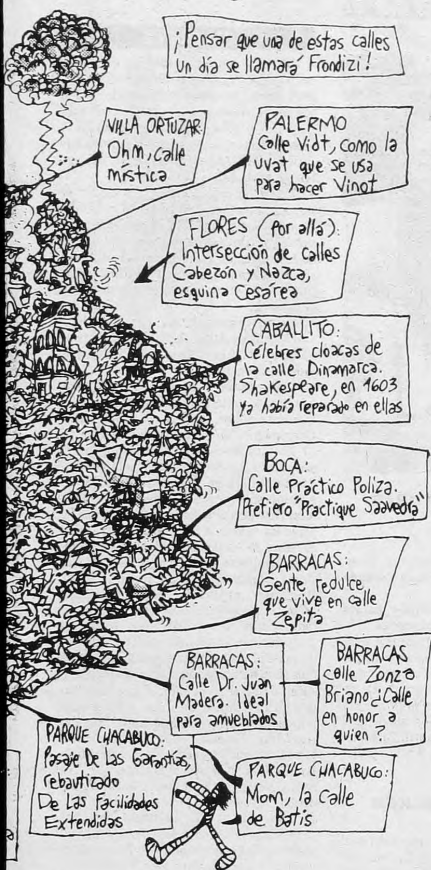 ¡Pensar que una de estas calles
un día se llamará Frondizi!
VILLA ORTUZAR:
Ohm, calle
mística
PALERMO
Calle Vidt, como la
uvat que se usa
para hacer Vinot
FLORES (Por allá):
Intersección de calles
Cabezón y Nazca,
esquina Cesárea
CABALLITO:
Célebres cloacas de
la calle Dinamarca.
Shakespeare, en 1603
ya había reparado en ellas
BOCA:
Calle Práctico Poliza.
Prefiero "Practique Saavedra"
BARRACAS:
Gente redulce
que vive en calle
Zepita
BARRACAS:
Calle Dr. Juan
Madera. Ideal
para amueblados
BARRACAS
calle Zonza
Briano ¿Calle
en honor a
quien?
PARQUE CHACABUCO:
Pasaje De Las Garantías,
rebautizado
De Las Facilidades
Extendidas
PARQUE CHACABUCO:
Mom, la calle
de Batis